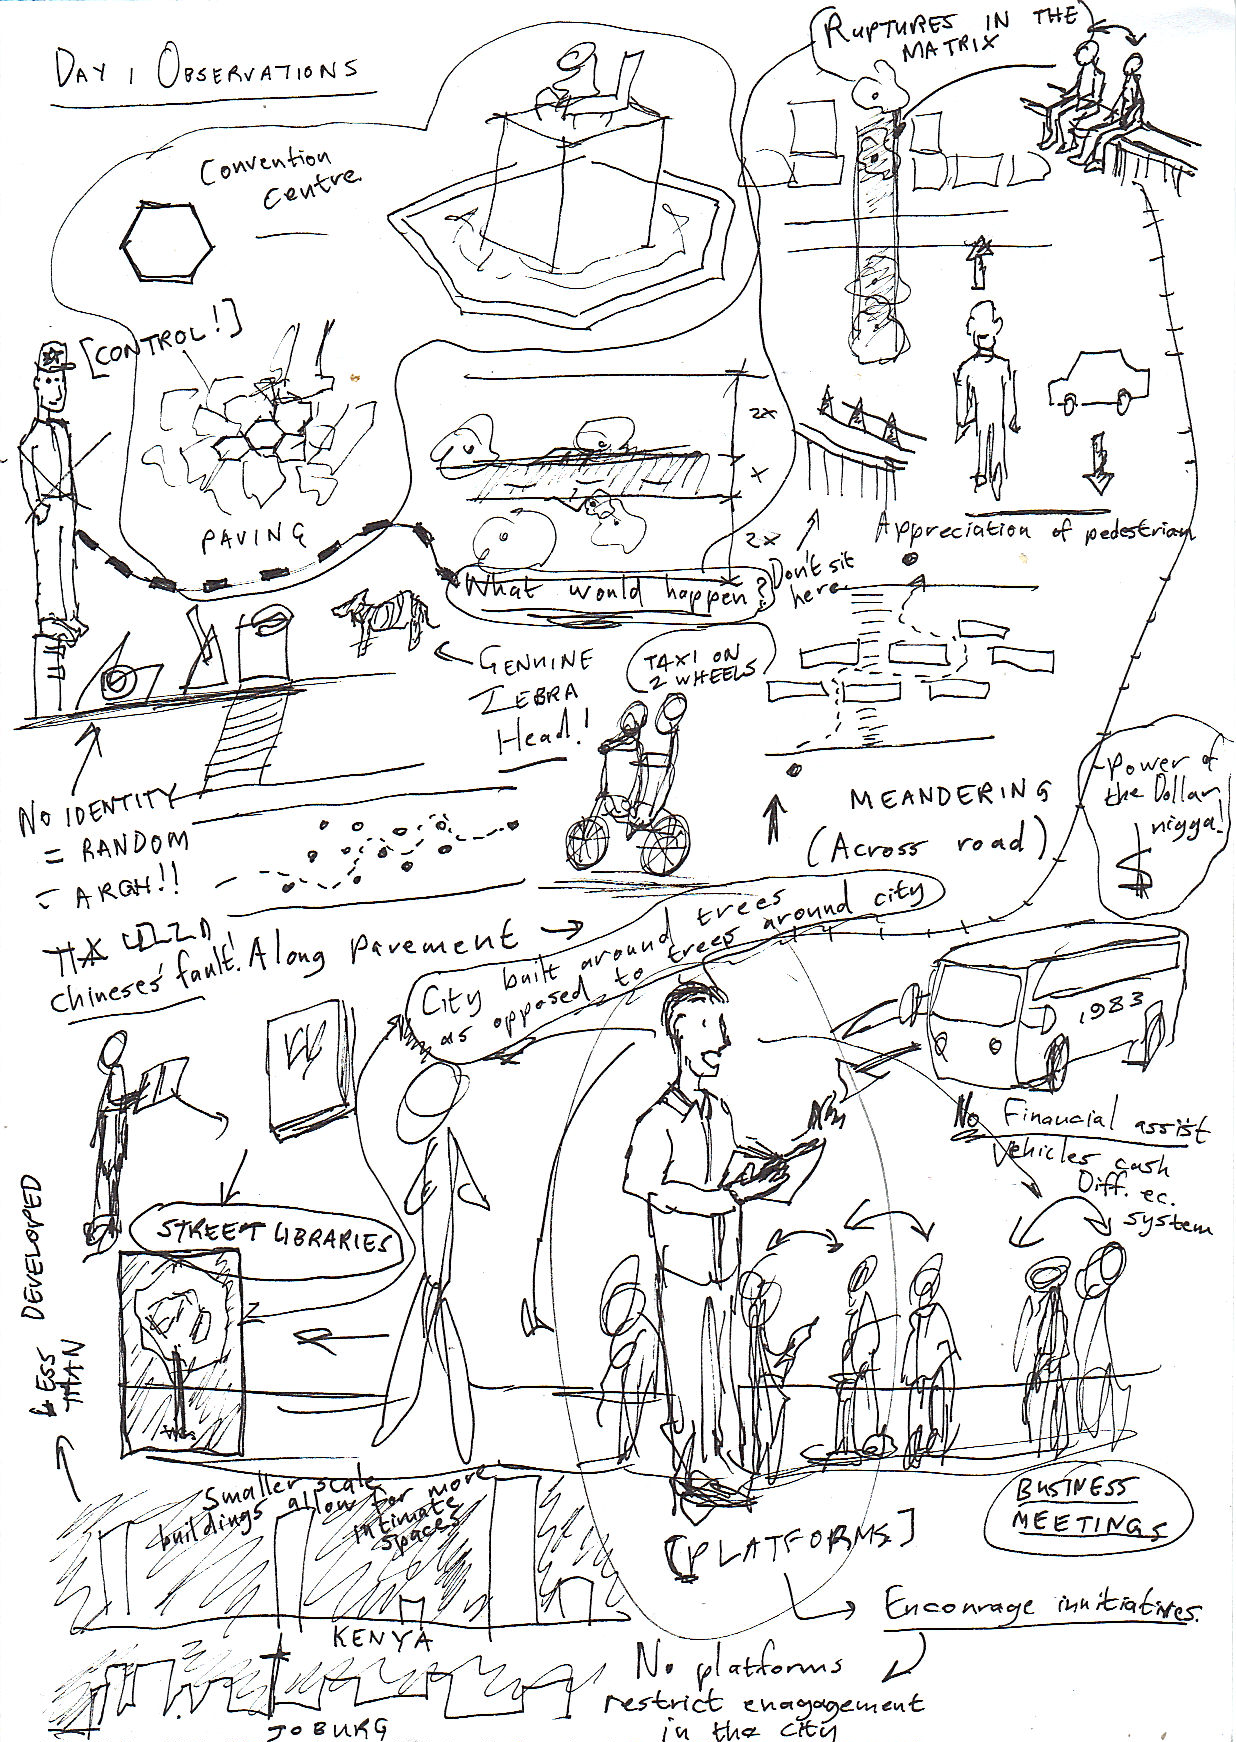 DAY 1 OBSERVATIONS
RUPTURES IN THE
MATRIX
Convention
Centre
[CONTROL!]
PAVING
2x
x
2x
What would happen?
Don't sit
here
Appreciation of pedestrian
GENUINE
ZEBRA
Head!
TAXI ON
2 WHEELS
MEANDERING
(Across road)
Power of
the Dollar
nigga!
$
NO IDENTITY
= RANDOM
= ARGH!!
Chineses' fault!
Along pavement
City built around trees
as opposed to trees around city
1983
No Financial assist
Vehicles cash
Diff. ec.
system
STREET LIBRARIES
LESS DEVELOPED
THAN
Smaller scale
buildings allow for more
intimate
spaces
KENYA
JOBURG
BUSINESS
MEETINGS
[PLATFORMS]
Encourage innitiatives.
No platforms
restrict enagagement
in the city